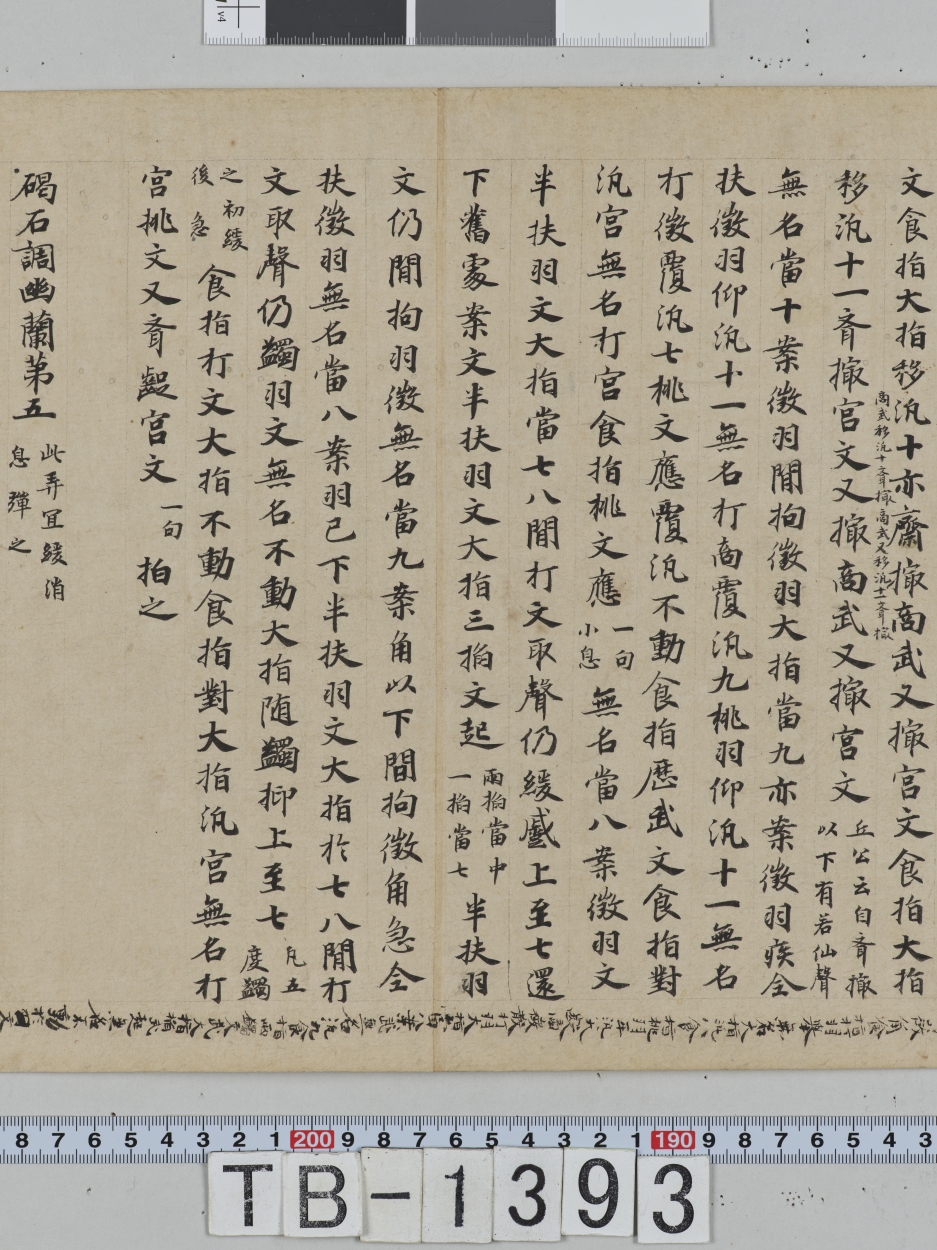 文食指大指移汎十亦齊撮商武又撮宮文食指大指
商武移汎十齊撮商武又移汎十一齊撮
移汎十一齊撮宮文又撮商武又撮宮文
丘公云自齊撮
以下有若仙聲
無名當十案徵羽間拘徵羽大指當九亦案徵羽疾全
扶徵羽仰汎十一無名打商覆汎九桃羽仰汎十一無名
打徵覆汎七桃文應覆汎不動食指歷武文食指對
汎宮無名打宮食指桃文應
一句
小息
無名當八案徵羽文
半扶羽文大指當七八間打文取聲仍緩蹙上至七還
下舊處案文半扶羽文大指三掐文起
兩掐當中
一掐當七
半扶羽
文仍間拘羽徵無名當九案角以下間拘徵角急全
扶徵羽無名當八案羽已下半扶羽文大指於七八間打
文取聲仍蠲羽文無名不動大指随蠲抑上至七
凡五
度蠲
之初緩
後急
食指打文大指不動食指對大指汎宮無名打
宮桃文又齊齪宮文
一句
拍之
碣石調幽蘭第五
此弄宜緩消
息彈之
v4
3 4 5 6 7 8 9 190 1 2 3 4 5 6 7 8 9 200 1 2 3 4 5 6 7 8
TB-1393